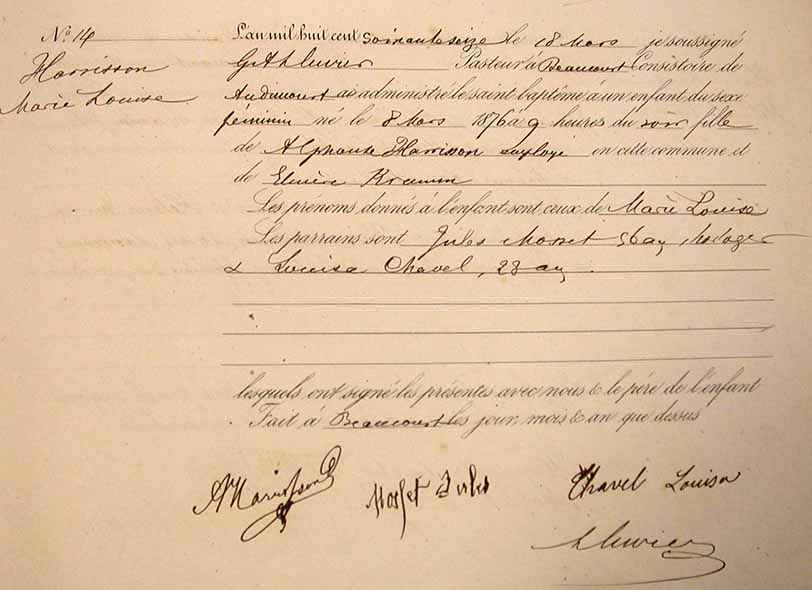 N.º 14
Harrisson
Marie Louise
L'an mil huit cent soixante seize le 18 Mars je soussigné
Pasteur à Beaucourt Consistoire de
Audincourt ai administré le saint baptême à un enfant du sexe
feminin né le 8 Mars 1876 à 9 heures du soir fille
de Alphonse Harrisson employé en cette commune et
de Elmire Kramm
Les prénoms donnés à l'enfant sont ceux de Marie Louise
Les parrains sont Jules Mosset 56 an, horloger
& Louisa Chavel, 23 an.
lesquels ont signé les présentes avec nous & le père de l'enfant
Fait à Beaucourt les jour, mois & an que dessus
AHarrisson
Mosset Jules
Chavel Louisa